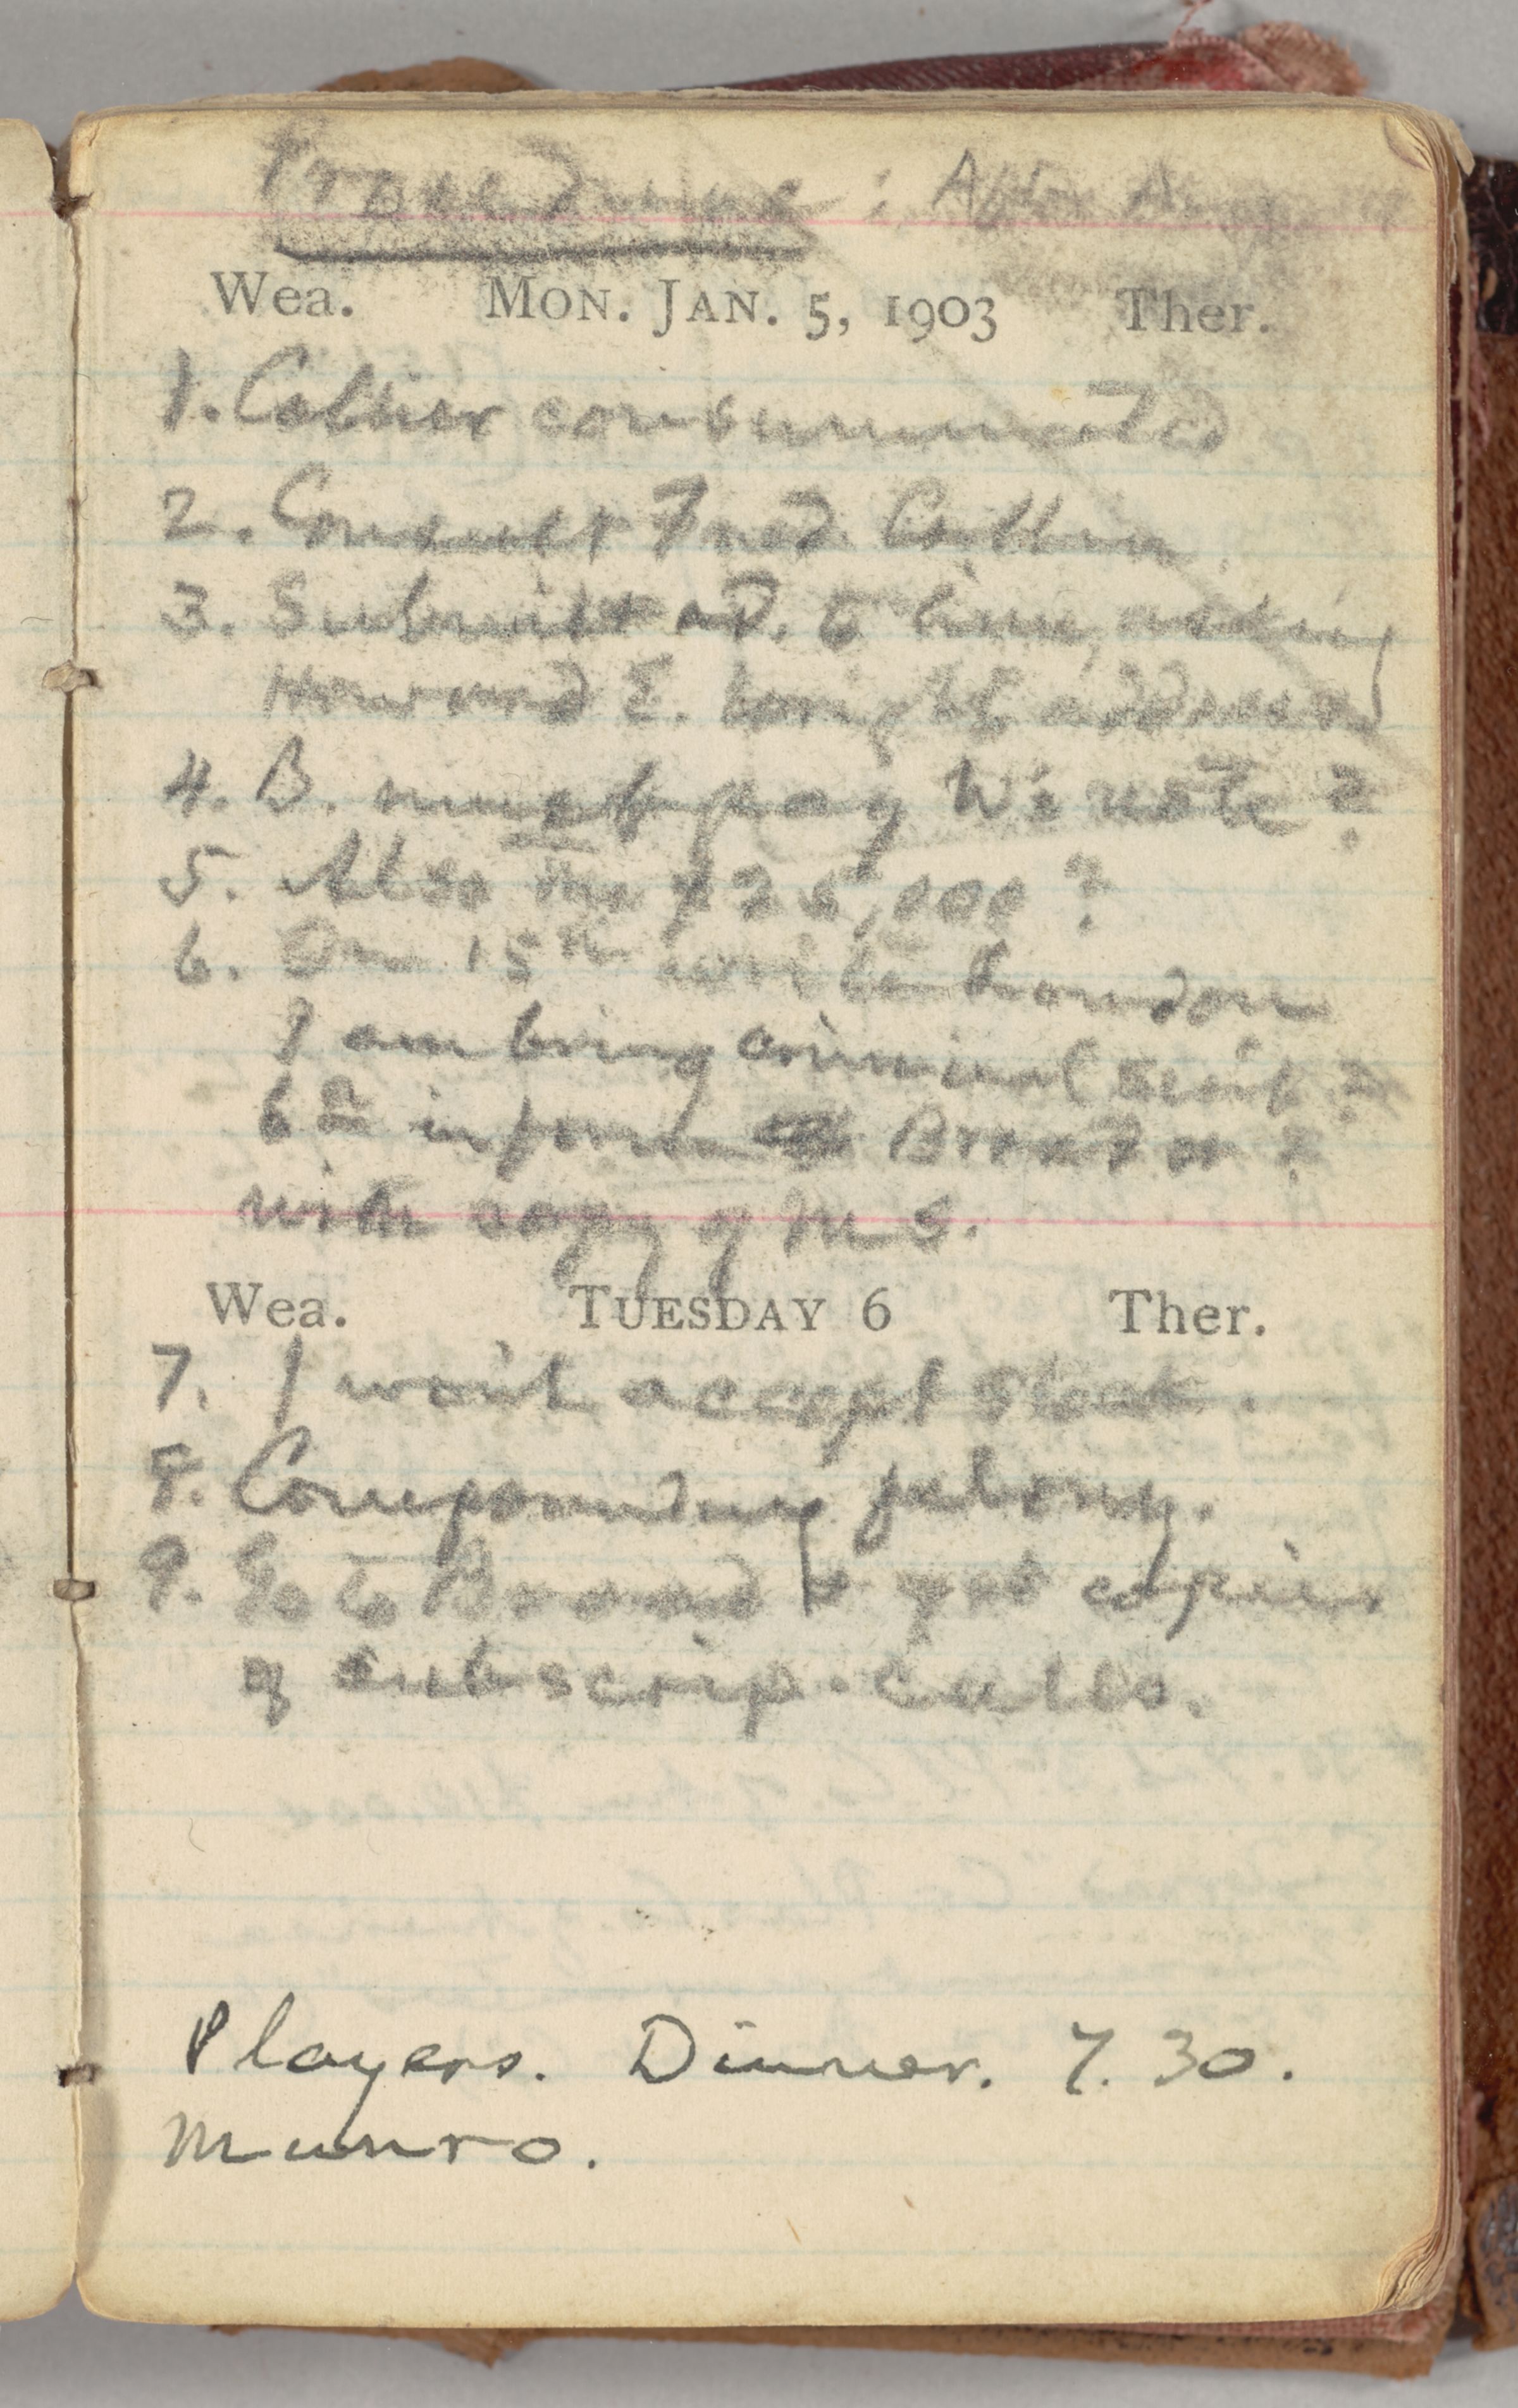 Procedure: After
Wea. MON. JAN. 5, 1903 Ther.
1. Collier consummated
2. Consult Fred. Collin.
3. Submit ad. to him, asking
Howard E. Wright's address
4. B. must pay W's note?
5. Also the $25,000?
6. On 15th write London
I am bring criminal suit?
6a inform Brentor?
with copy of MS.
Wea. TUESDAY 6 Ther.
7. I won't accept stock.
8. Compounding felony.
9. Go to B & get copies
of subscrip. calls.
Players. Dinner. 7.30.
Munro.